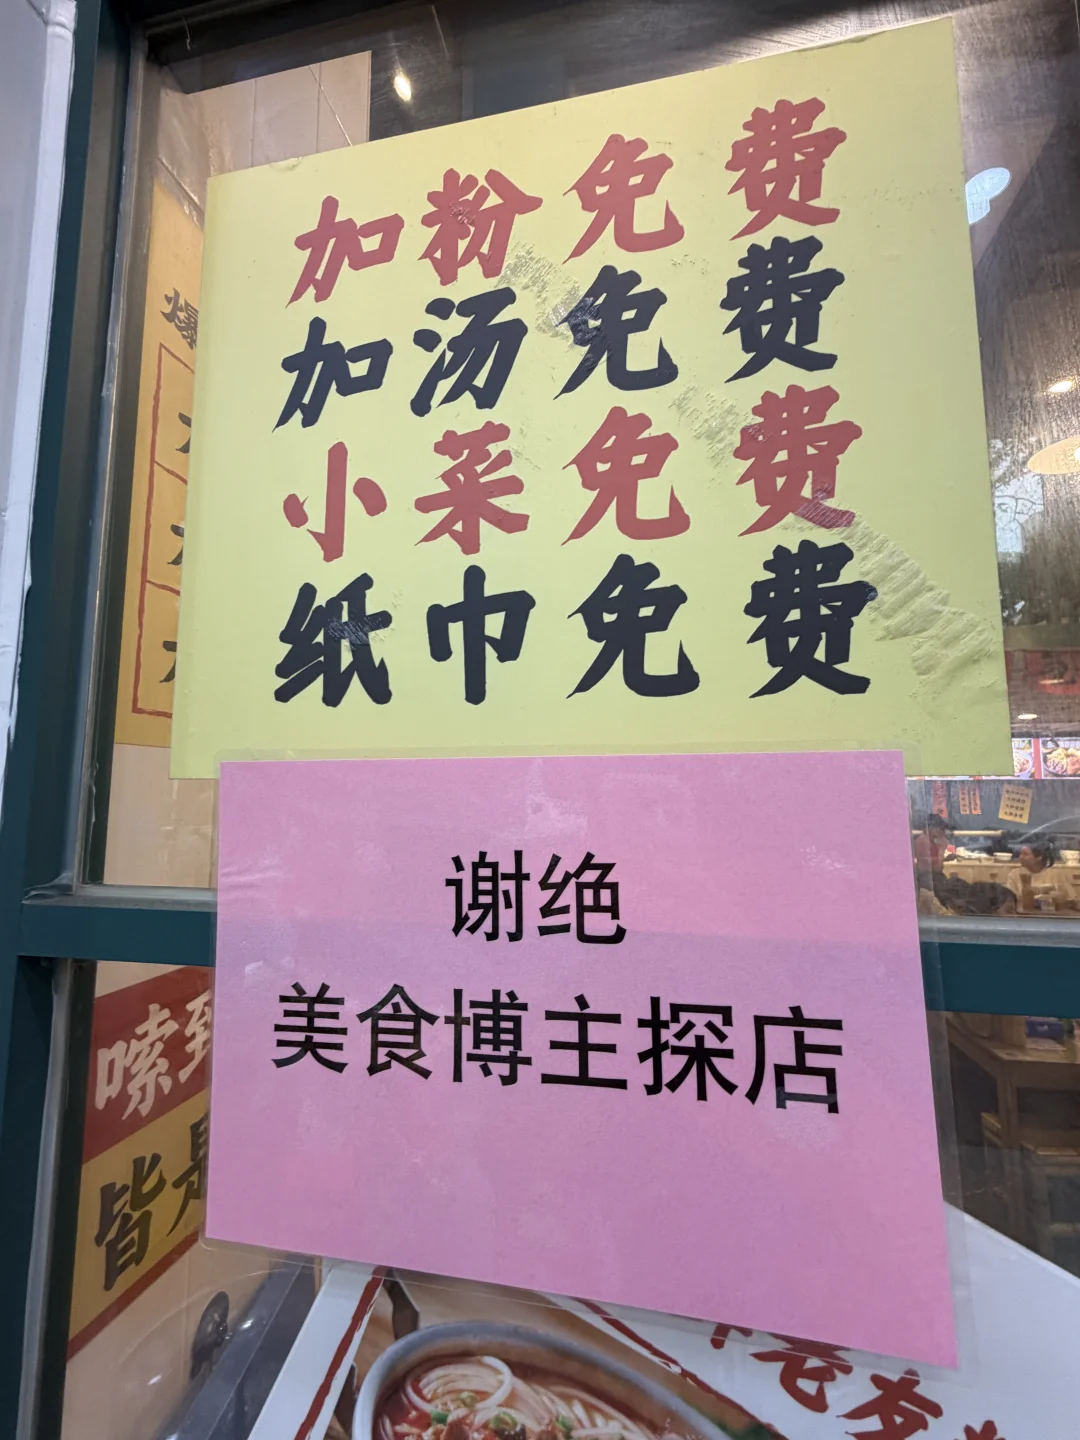 加粉免费
加汤免费
小菜免费
纸巾免费
谢绝
美食博主探店
爆
嗦到
皆是
老友